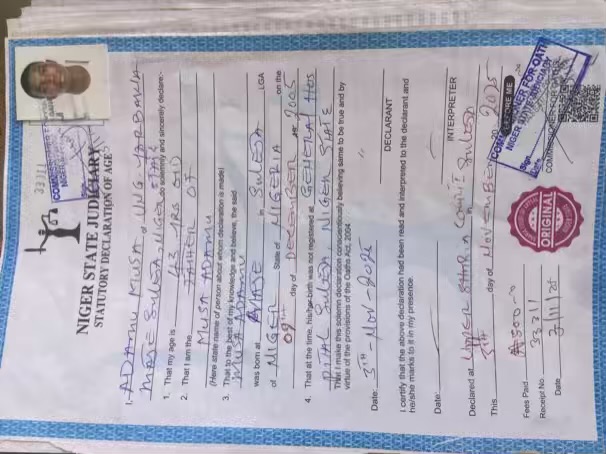 33711
NIGER STATE JUDICIARY
STATUTORY DECLARATION OF AGE
I, ADAMU MUSA of UNG. YARBAWA
MAJE SULEJA, NIGER STATE do solemnly and sincerely declare:-
1. That my age is 43 YRS OLD
2. That I am the FATHER OF
MUSA ADAMU
(Here state name of person about whom declaration is made)
3. That to the best of my knowledge and believe, the said
MUSA ADAMU
was born at in SULEJA LGA
of NIGER State of NIGERIA on the
09TH day of DECEMBER 2005
4. That at the time, his/her birth was not registered at GENERAL HOS
PITAL SULEJA, NIGER STATE
That I make this solemn declaration conscientiously believing same to be true and by
virtue of the provisions of the Oaths Act, 2004
Date: 3TH-NOV-2025
DECLARANT
I certify that the above declaration had been read and interpreted to the declarant and
he/she marks to it in my presence.
Date
INTERPRETER
Declared at UPPER SHARIA COURT I in SULEJA
This 3TH day of NOVEMBER 2025
BEFORE ME
Fees Paid ₦500
Receipt No. 33711
Date 3/11/25
ORIGINAL
COMMISSIONER FOR OATH
NIGER STATE JUDICIARY